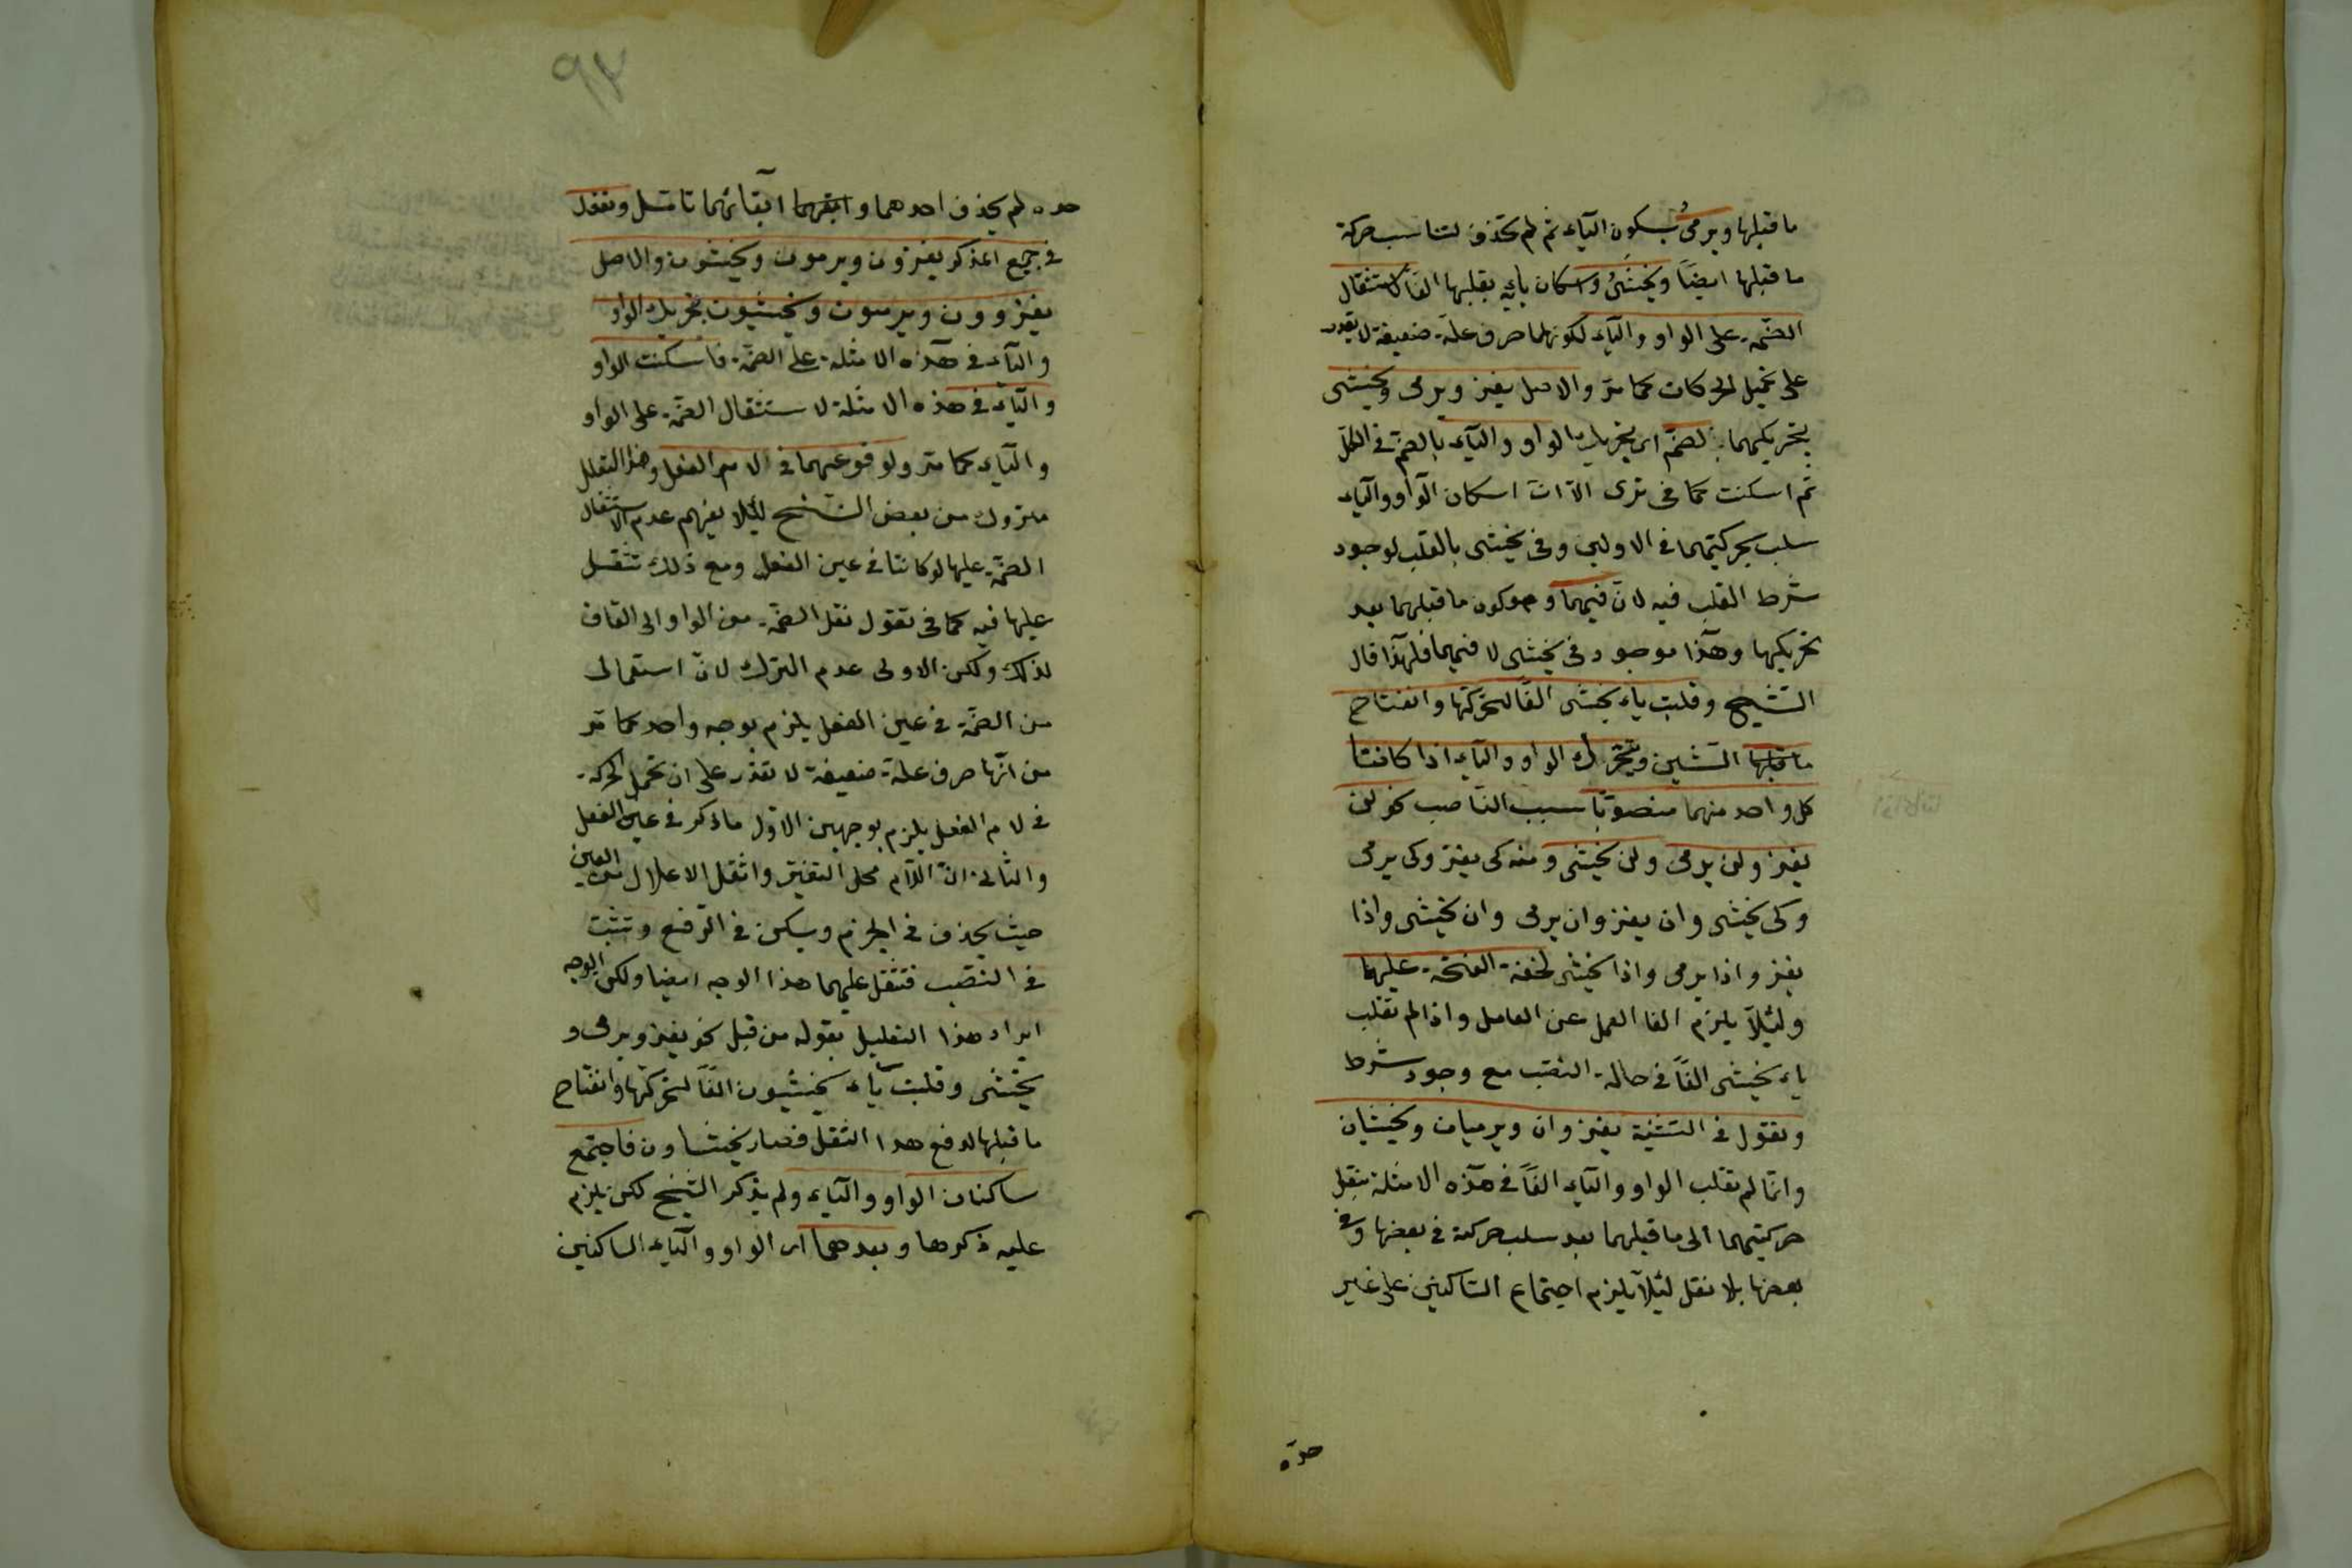 ما قبلها ويرمىُ بسكون الياء ثم لم تحذف لتناسب حركة
ما قبلها ايضًا ويخشىُ واسكان يائه بقلبها الفًا لاستثقال
الضمّة على الواو والياء لكونهما حرف علّة ضعيفة لا تقدر
على تحمل الحركات كما مرّ والاصل يغزو ويرمى ويخشى
بتحريكهما بالضمّ اى بتحريك الواو والياء بالضمّ فى الكلّ
ثم اسكنت كما فى ترى الّا انّ اسكان الواو والياء
سلب حركتهما فى الاولين وفى يخشى بالقلب لوجود
شرط القلب فيه لا فيهما وهو كون ما قبلهما بعد
تحريكهما وهذا موجود فى يخشى لا فيهما فلهذا قال
الشيخ وقلبت ياء يخشى الفًا لتحركها وانفتاح
ما قبلها الشين ويتحرك الواو والياء اذا كانتا
كل واحد منهما منصوبًا بسبب الناصب نحو لن
يغزو ولن يرمى ولن يخشى ومنه كى يغزو وكى يرمى
وكى يخشى وان يغزو وان يرمى وان يخشى واذا
يغزو واذا يرمى واذا يخشى لخفة الفتحة عليهما
ولئلّا يلزم الغا العمل عن العامل واذا لم تقلب
ياء يخشى الفًا فى حالة النصب مع وجود شرط
وتقول فى التثنية يغزوان ويرميان ويخشيان
وانّما لم تقلب الواو والياء الفًا فى هذه الامثلة بنقل
حركتهما الى ما قبلهما بعد سلب حركته فى بعضها وفى
بعضها بلا نقل لئلّا يلزم اجتماع الساكنين على غير
حدّه
٩٣
حده لم يحذف احدهما و ابقائهما تامّل وتقول
فى جمع المذكر يغزون ويرمون ويخشون والاصل
يغزوون ويرميون ويخشيون بتحريك الواو
والياء فى هذه الامثلة على الضمّة فاسكنت الواو
والياء فى هذه الامثلة لاستثقال الضمّة على الواو
والياء كما مرّ ولوقوعهما فى لام الفعل وهذا التعليل
متروك من بعض النسخ لئلا يفهم عدم استثقال
الضمّة عليها لو كانتا فى عين الفعل ومع ذلك تثقل
عليها فيه كما فى تقول نقل الضمّة من الواو الى القاف
لذلك ولكن الاولى عدم الترك لانّ استعمالى
من الضمّة فى عين الفعل يلزم بوجه واحد كما مرّ
من انّها حرف علّة ضعيفة لا تقدر على ان تحمل الحركة
فى لام الفعل يلزم بوجهين الاول ما ذكر فى عين الفعل
والثانى انّ اللام محل التغيّر واثقل الاعلال من العين
حيث يحذف فى الجزم ويسكن فى الرفع وتثبت
فى النصب فتثقل عليهما هذا الوجه ايضا ولكن الوجه
ايراد هذا التعليل بقوله من قبل نحو يغزو ويرمى و
يخشى وقلبت ياء يخشيون الفًا لتحركها وانفتاح
ما قبلها لدفع هذا الثقل فصار يخشاون فاجتمع
ساكنان الواو والياء ولم يذكر الشيخ لكن يلزم
عليه ذكرها وبعدهما اى الواو والياء الساكنين